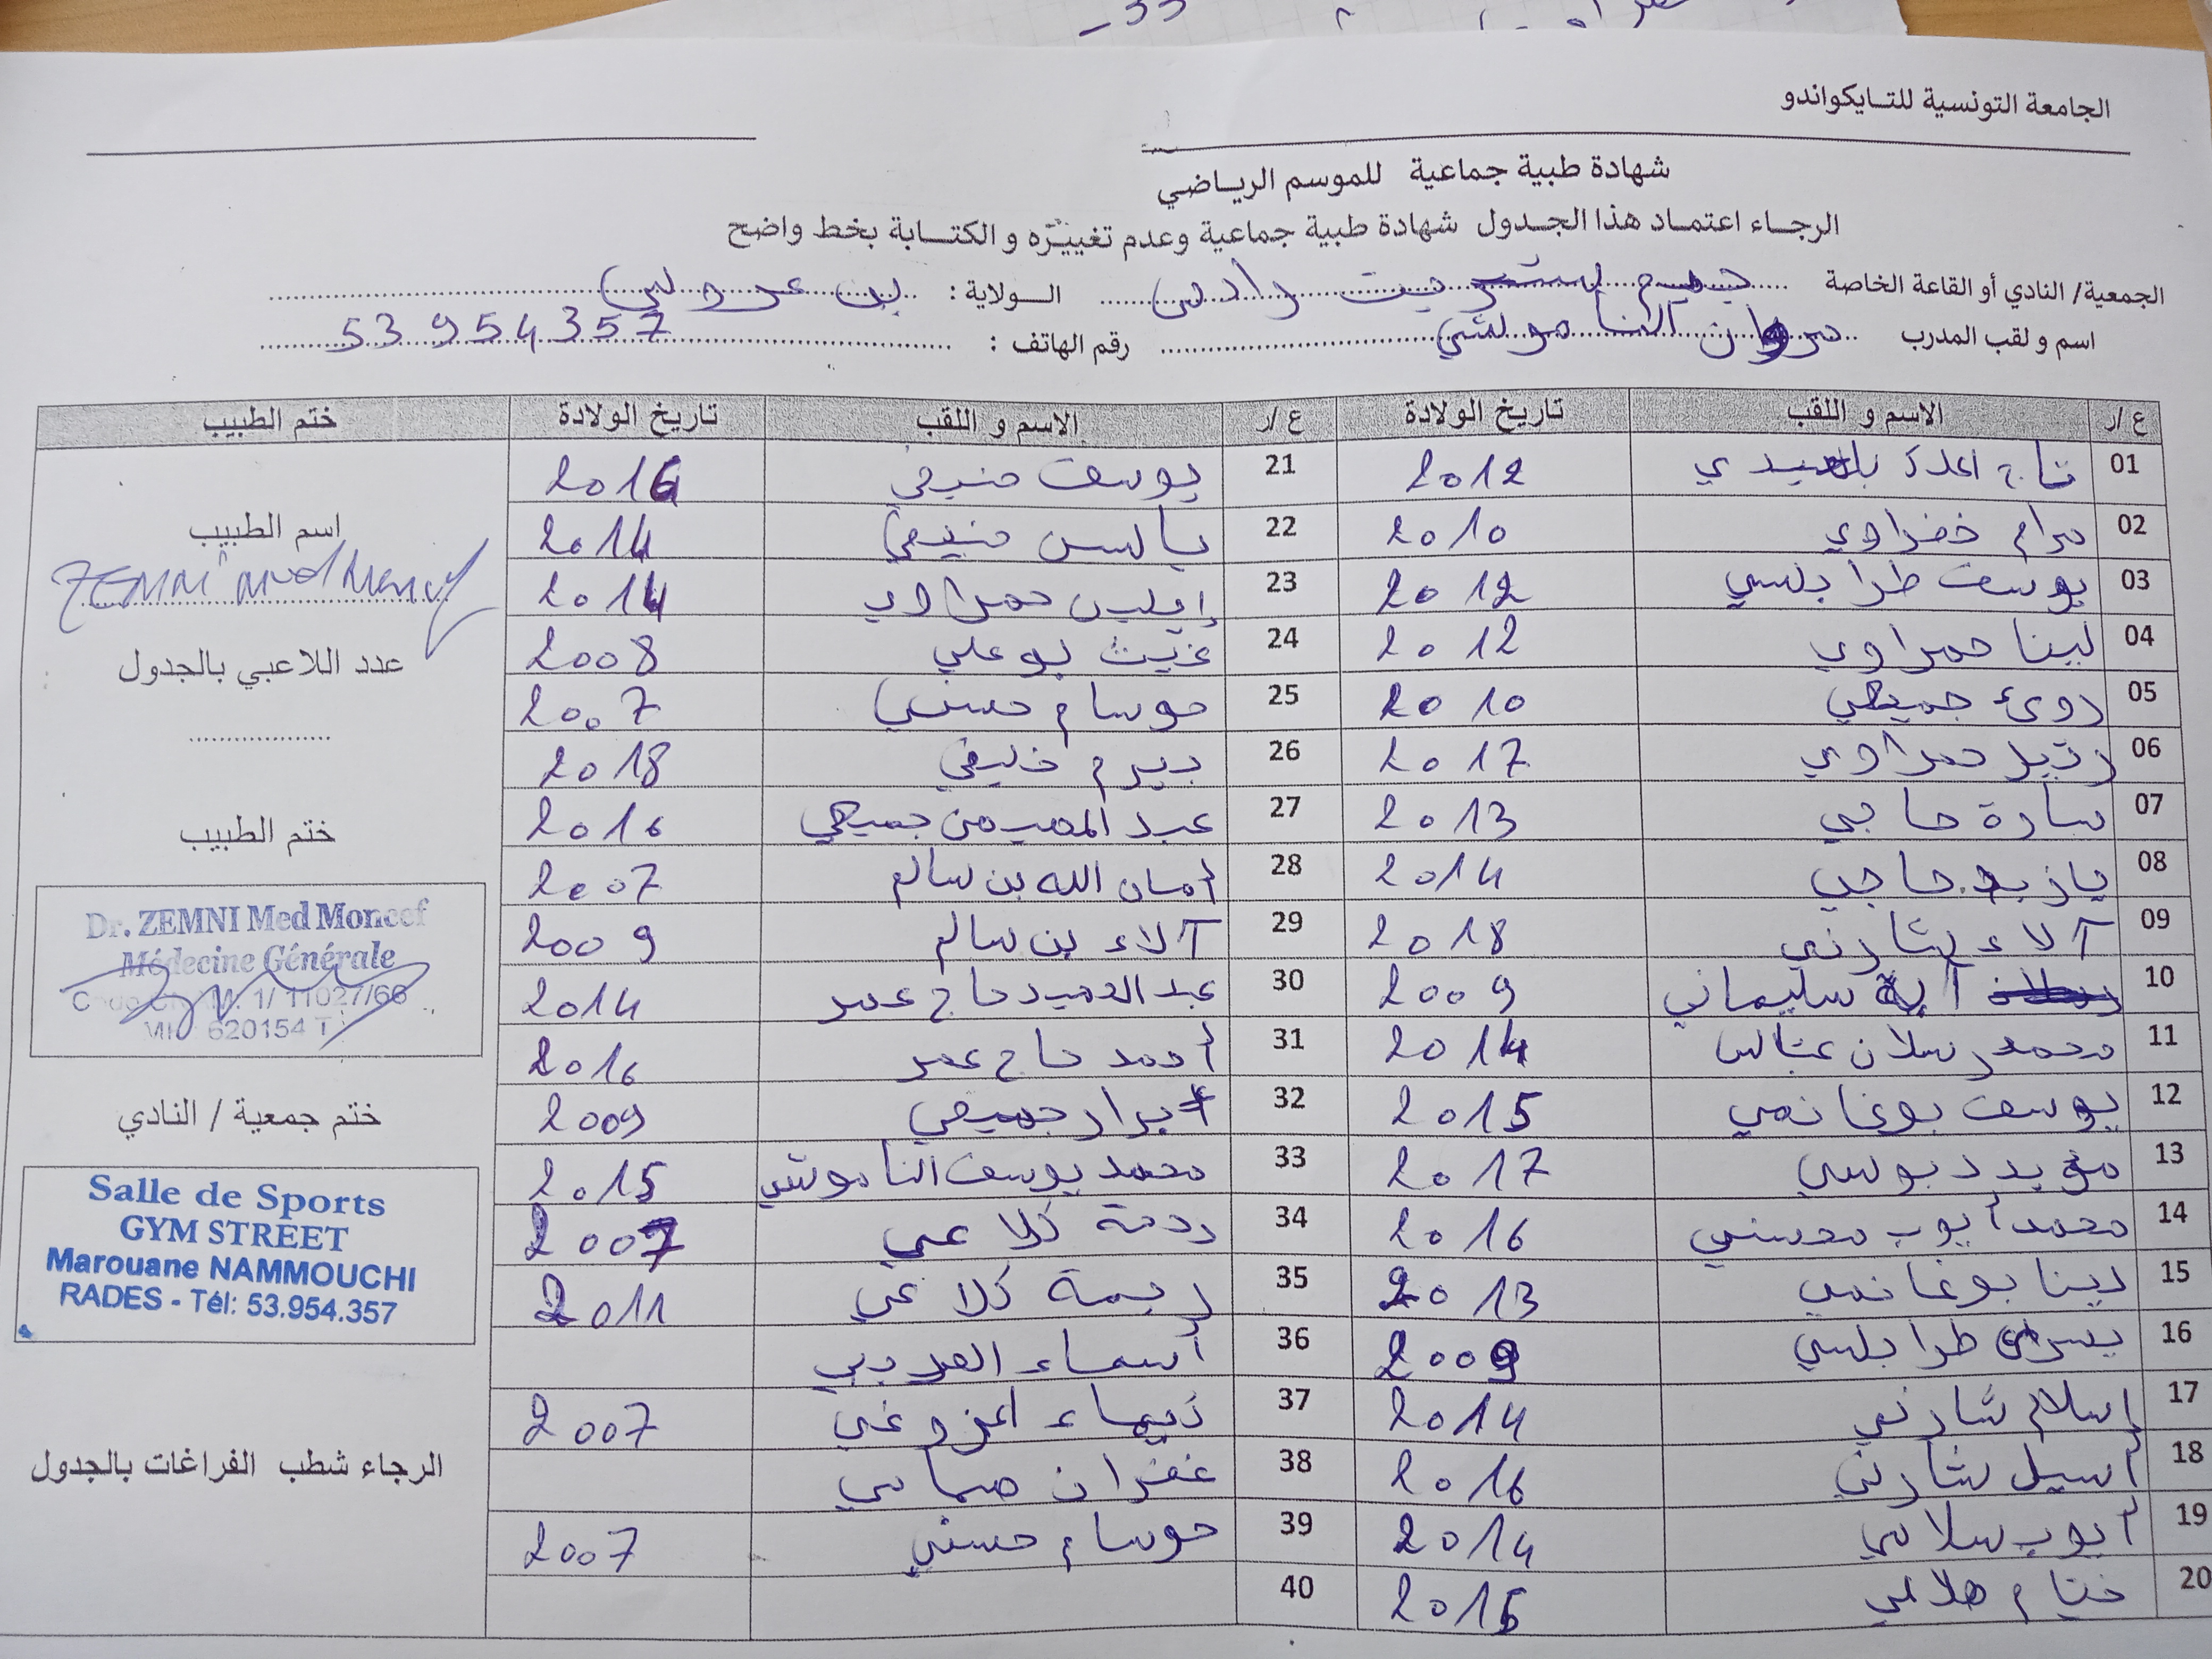 الجامعة التونسية للتايكواندو
شهادة طبية جماعية للموسم الرياضي
الرجاء اعتماد هذا الجدول شهادة طبية جماعية وعدم تغييره و الكتابة بخط واضح
الجمعية/ النادي أو القاعة الخاصة جيم ستريت رادس الولاية : بن عروس
اسم و لقب المدرب مروان النا موشي رقم الهاتف : 53 954 357
ع /ر الاسم و اللقب تاريخ الولادة ع /ر الاسم و اللقب تاريخ الولادة ختم الطبيب
01 تاج 2012
02 مرام خضراوي 2010
03 يوسف طرابلسي 2012
04 لينا حمراوي 2012
05 جميعي 2010
06 رتيل حمراوي 2017
07 سارة حاجي 2013
08 يازيد حاجي 2014
09 آلاء شارني 2018
10 آية سليماني 2009
11 محمد رسلان 2014
12 يوسف بوغانمي 2015
13 مؤيد دبوسي 2017
14 محمد أيوب محسني 2016
15 لينا بوغانمي 2013
16 يسرى طرابلسي 2009
17 إسلام شارني 2014
18 أسيل شارني 2016
19 أيوب سلامي 2014
20 ختام هلالي
21 يوسف منيعي 2016
22 ياسين منيعي 2014
23 إيلين حمراوي 2014
24 غيث بوعلي 2008
25 حوسام حسني 2007
26 بيرم خليفي 2018
27 عبد المهيمن جميعي 2016
28 أمان الله بن سالم 2007
29 آلاء بن سالم 2009
30 عبد الحميد حاج عمر 2014
31 أحمد حاج عمر 2016
32 أبرار جميعي 2009
33 محمد يوسف الناموشي 2015
34 رحمة كلاعي 2007
35 ريمة كلاعي 2011
36 أسماء
37 2007
38 غفران
39 حوسام حسني 2007
40
اسم الطبيب
ZEMNI Med Moncef
عدد اللاعبي بالجدول
ختم الطبيب
Dr. ZEMNI Med Moncef
Médecine Générale
1/ 11027/66
620154 T
ختم جمعية / النادي
Salle de Sports
GYM STREET
Marouane NAMMOUCHI
RADES - Tél: 53.954.357
الرجاء شطب الفراغات بالجدول